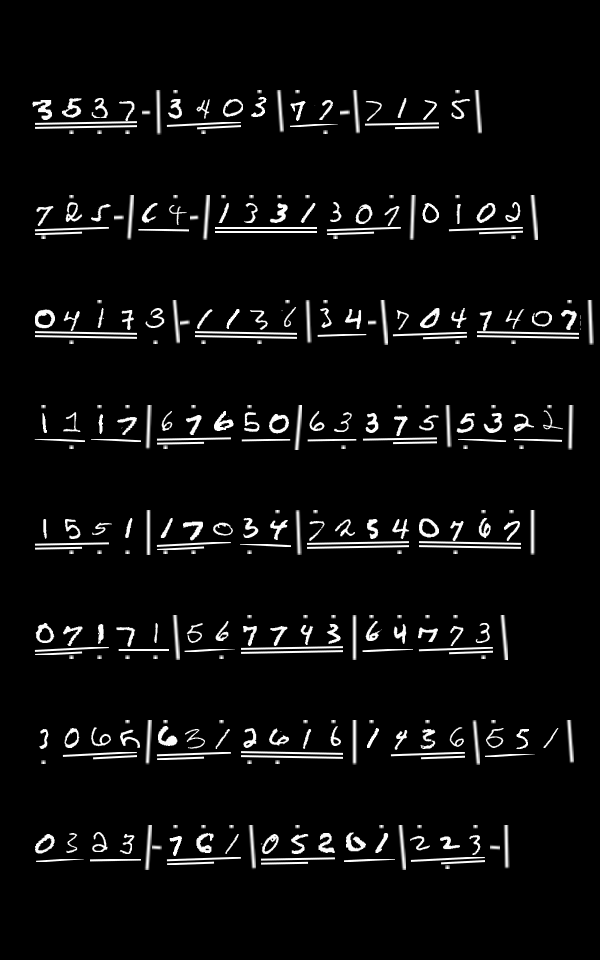 3537-|3403|72-|7175
725-|64-|1331307|0102
04173|-1136|34-|7047407
1117|67650|63375|5322
1551|17034|72540767
07171|567743|64773
3065|6312616|1436|551
0323|-761|05201|223-|